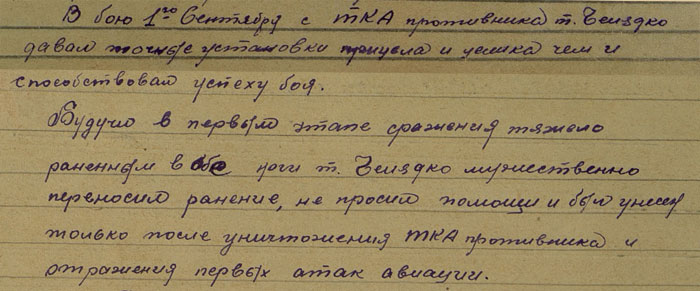 В бою 1го Сентября с ТКА противника т. Беизdко
давал точные установки прицела и целика чем и
способствовал успеху боя.
Будучи в первым этапе сражения тяжело
раненным в обе ноги т. мужественно
переносил ранение, не просил помощи и был унесен
только после уничтожения ТКА противника и
отражения первых атак авиации.